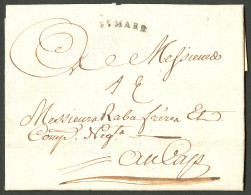 St MARC
A Messieurs
Messieurs Rabu freres Et
Comp. Negts
au Cap